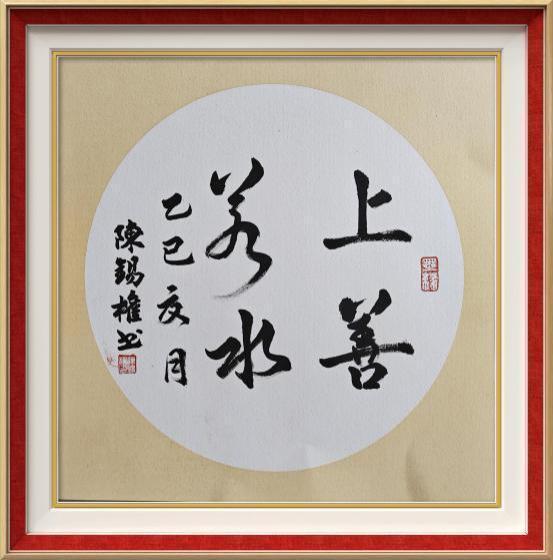 上善
若水
乙巳亥月
陳錫權书